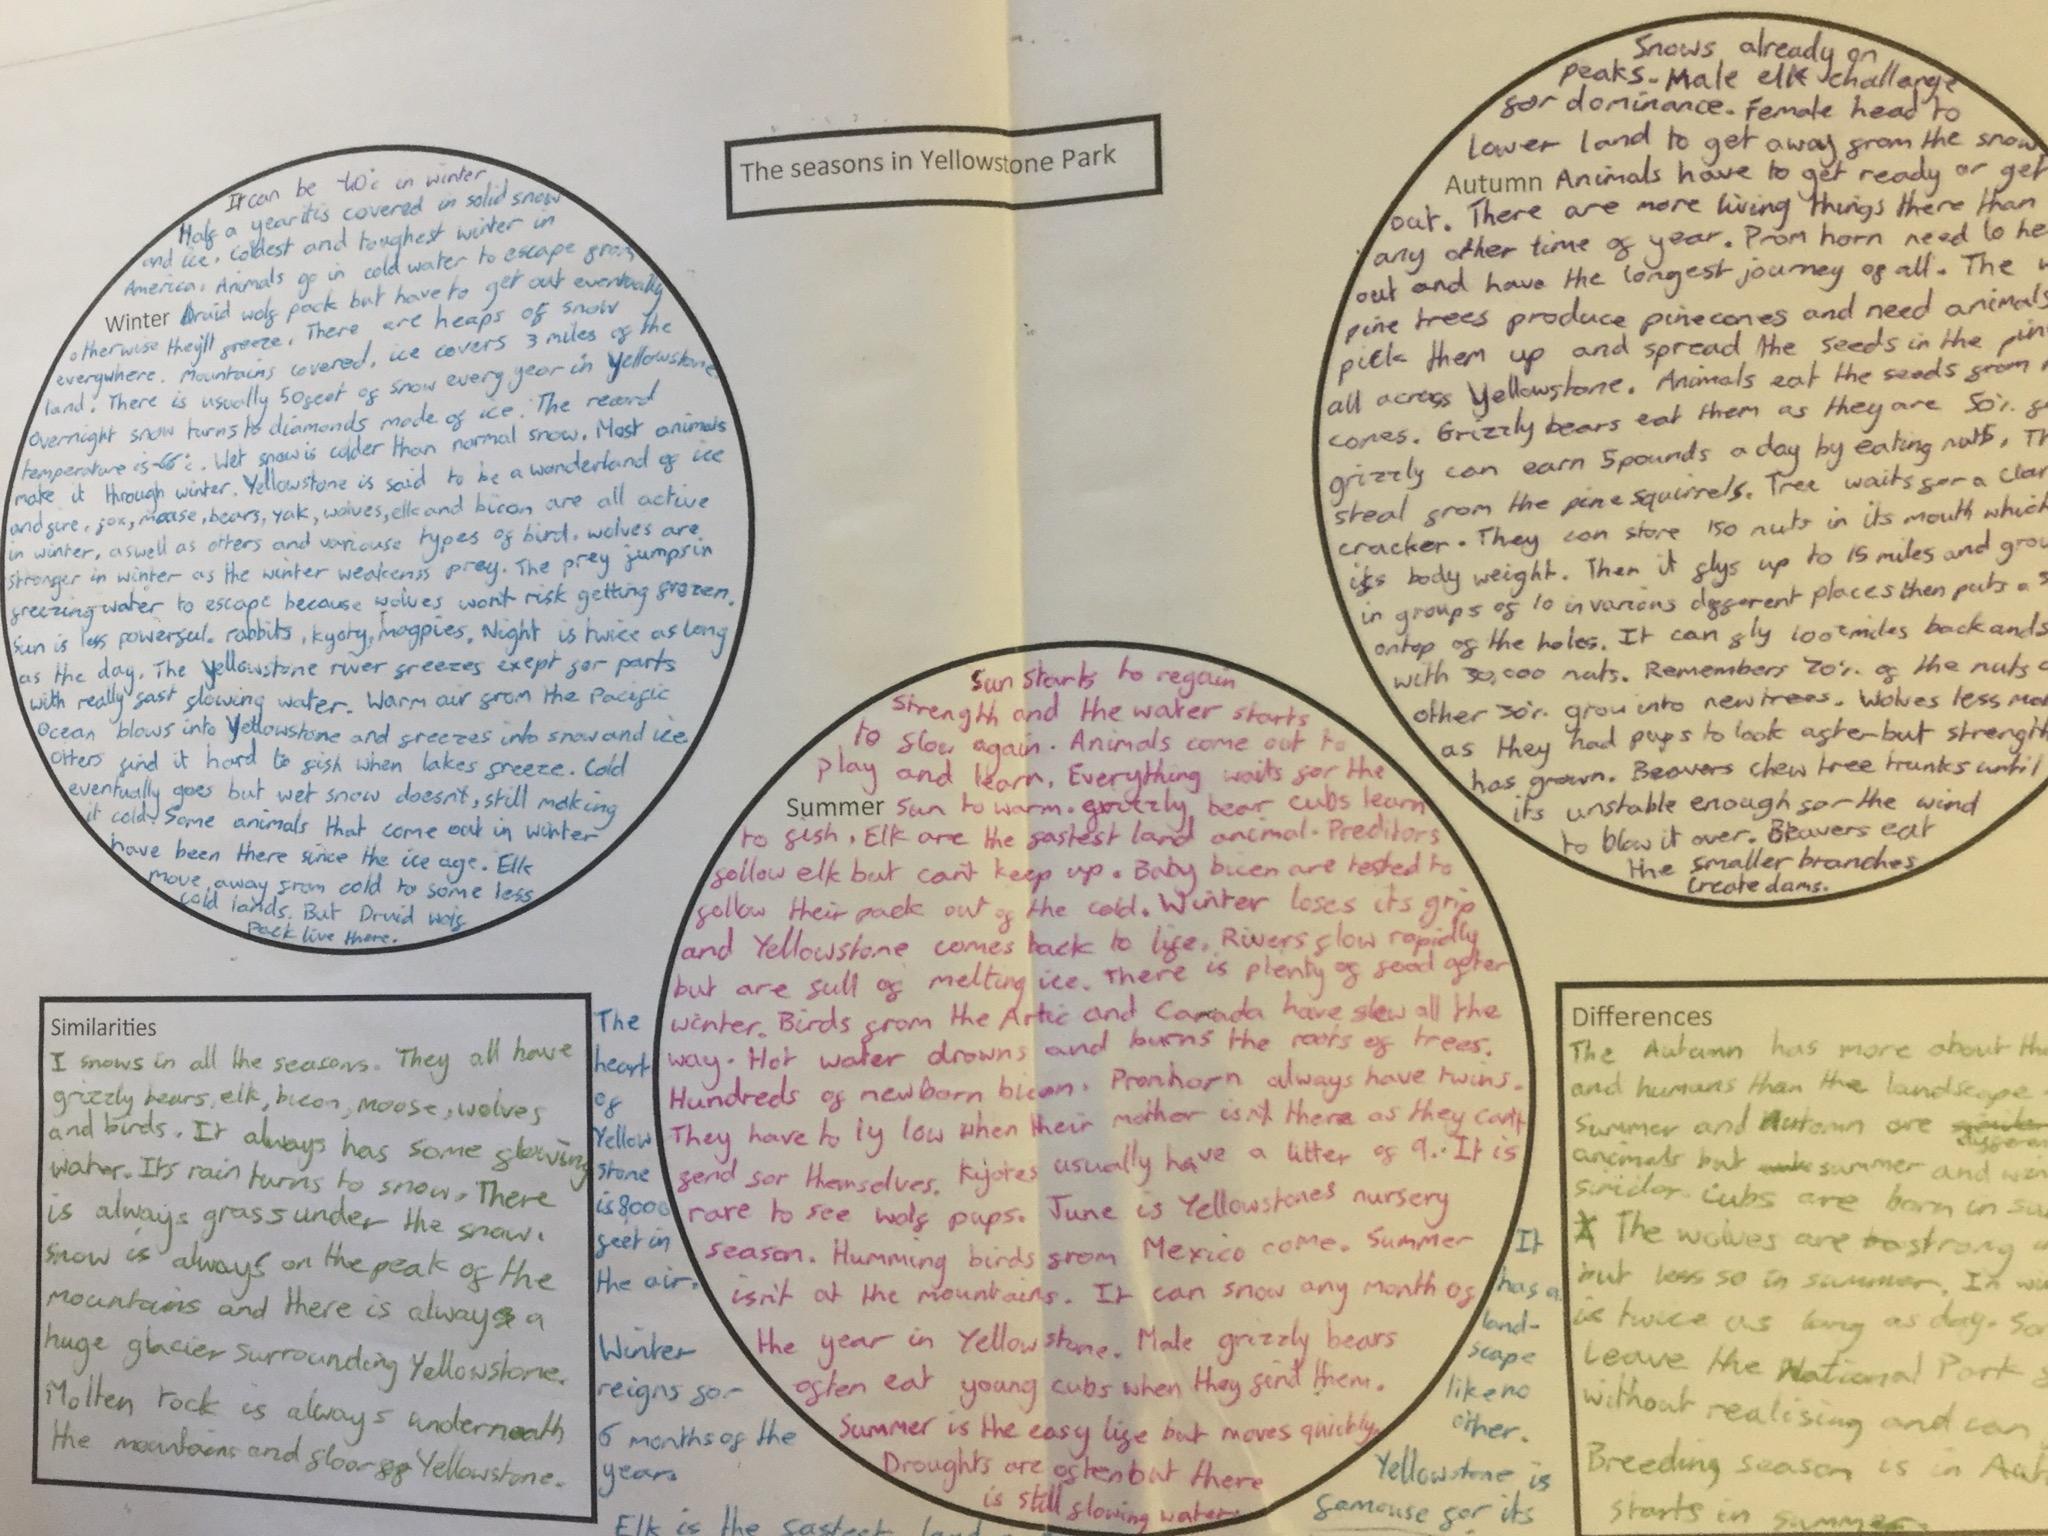 The seasons in Yellowstone Park
It can be -40°c in winter
Half a year it is covered in solid snow
and ice. Coldest and toughest winter in
America. Animals go in cold water to escape from
Winter Druid wolf pack but have to get out eventually
otherwise they'll freeze. There are heaps of snow
everywhere. Mountains covered, ice covers 3 miles of the
land. There is usually 50 feet of snow every year in Yellowstone
Overnight snow turns to diamonds made of ice. The record
temperature is -66°c. Wet snow is colder than normal snow. Most animals
make it through winter. Yellowstone is said to be a wonderland of ice
and fire, fox, moose, bears, yak, wolves, elk and bicon are all active
in winter, aswell as otters and variouse types of bird. wolves are
stronger in winter as the winter weakenss prey. The prey jumps in
freezing water to escape because wolves wont risk getting frozen.
Sun is less powerful. rabbits, kyoty, magpies. Night is twice as long
as the day. The Yellowstone river freezes exept for parts
with really fast flowing water. Warm air from the Pacific
Ocean blows into Yellowstone and freezes into snow and ice
Otters find it hard to fish when lakes freeze. Cold
eventually goes but wet snow doesn't, still making
it cold. Some animals that come out in winter
have been there since the ice age. Elk
move away from cold to some less
cold lands. But Druid wolf
pack live there.
Snows already on
peaks. Male elk challange
for dominance. Female head to
lower land to get away from the snow
Autumn Animals have to get ready or get
out. There are more living things there than
any other time of year. Prom horn need to
out and have the longest journey of all. The
pine trees produce pinecones and need animals
pick them up and spread the seeds in the
all across Yellowstone. Animals eat the seeds from
cones. Grizzly bears eat them as they are 50%
grizzly can earn 5 pounds a day by eating nuts,
steal from the pine squirrels. Tree waits for a
cracker. They can store 150 nuts in its mouth which
its body weight. Then it flys up to 15 miles and
in groups of 10 in various different places then puts a
ontop of the holes. It can fly 100 miles back and
with 30,000 nuts. Remembers 70% of the nuts
other 30% grow into new trees. Wolves less
as they had pups to look after but strength
has grown. Beavers chew tree trunks until
its unstable enough for the wind
to blow it over. Beavers eat
the smaller branches
Create dams.
Sun starts to regain
strength and the water starts
to flow again. Animals come out to
play and learn. Everything waits for the
Summer Sun to warm. grizzly bear cubs learn
to fish. Elk are the fastest land animal. Preditors
follow elk but can't keep up. Baby bicen are tested to
follow their pack out of the cold. Winter loses its grip
and Yellowstone comes back to life. Rivers flow rapidly
but are full of melting ice. There is plenty of food after
winter. Birds from the Artic and Canada have flew all the
way. Hot water drowns and burns the roots of trees.
Hundreds of newborn bicon. Pronhorn always have twins.
They have to ly low when their mother isn't there as they can't
fend for themselves. Kijotes usually have a litter of 9. It is
rare to see wolf pups. June is Yellowstones nursery
season. Humming birds from Mexico come. Summer
isn't at the mountains. It can snow any month of
the year in Yellowstone. Male grizzly bears
often eat young cubs when they find them.
Summer is the easy life but moves quickly.
Droughts are often but there
is still flowing water.
Similarities
I snows in all the seasons. They all have
grizzly bears, elk, bicon, moose, wolves
and birds. It always has some flowing
water. Its rain turns to snow. There
is always grass under the snow.
Snow is always on the peak of the
mountains and there is always a
huge glacier surrounding Yellowstone.
Molten rock is always underneath
the mountains and floor of Yellowstone.
The
heart
of
Yellow
stone
is 8000
feet in
the air.
Winter
reigns for
6 months of the
year.
Elk is the fastest land
It
has a
land-
scape
like no
other.
Yellowstone is
famouse for its
Differences
The Autumn has more about the
and humans than the landscape
Summer and Autumn are
animals but summer and
similar. Cubs are born in
The wolves are strong
but less so in summer. In
is twice as long as day.
Leave the National Park
without realising and can
Breeding season is in
starts in summer